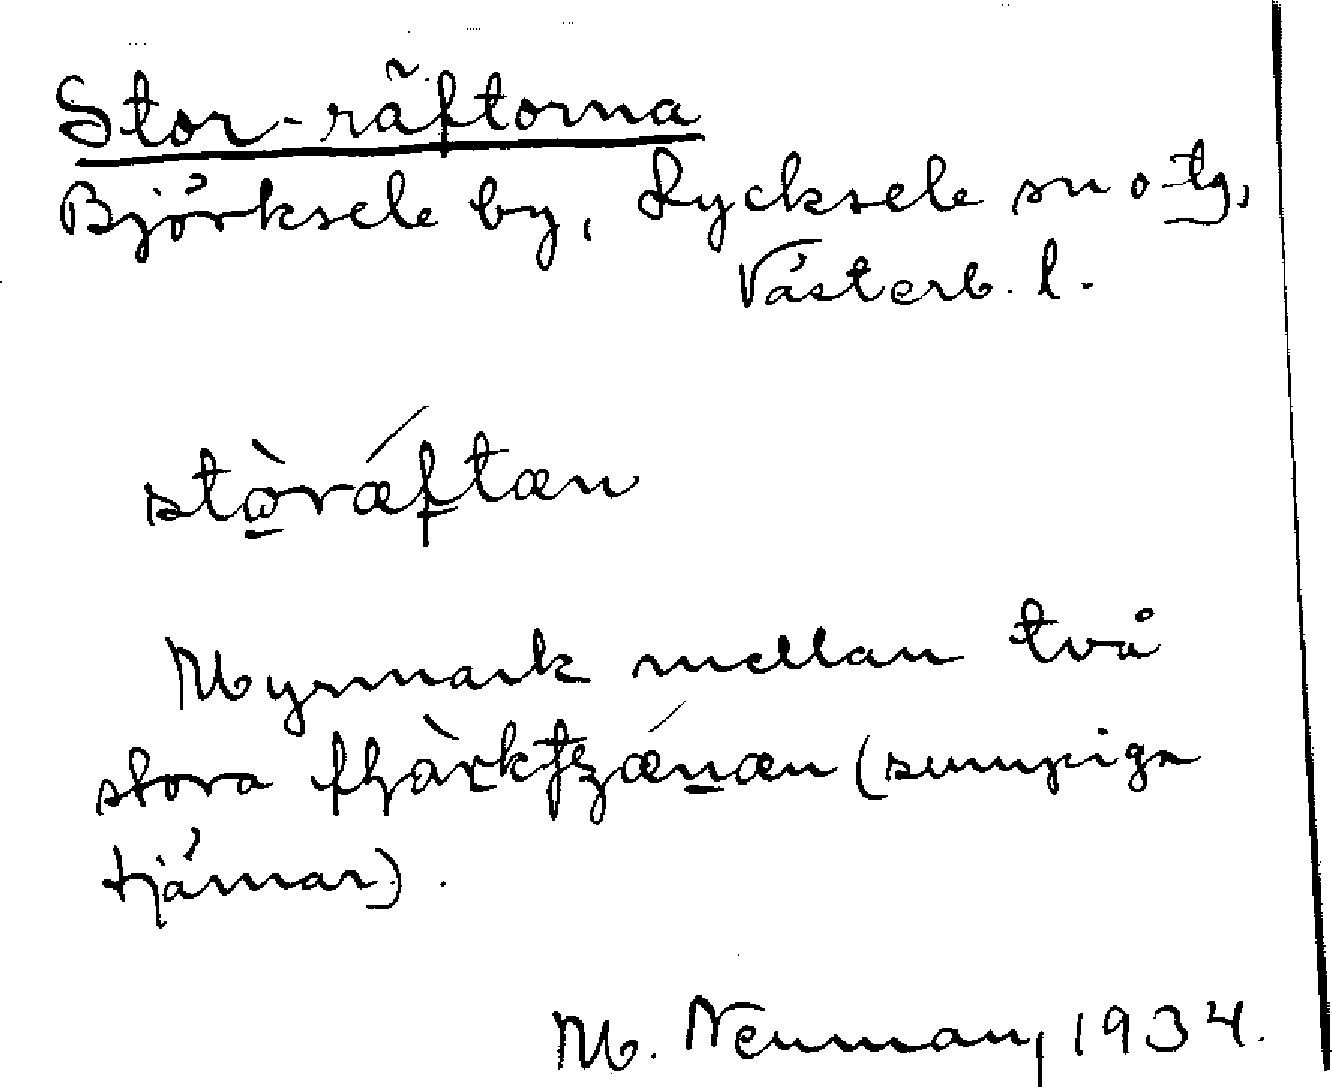 Stor-räftorna
Björksele by, Lycksele sn o tg,
Västerb. l.
stòrǽftæn
Myrmark mellan två
stora (sumpiga
tjärnar).
M. Neuman, 1934.